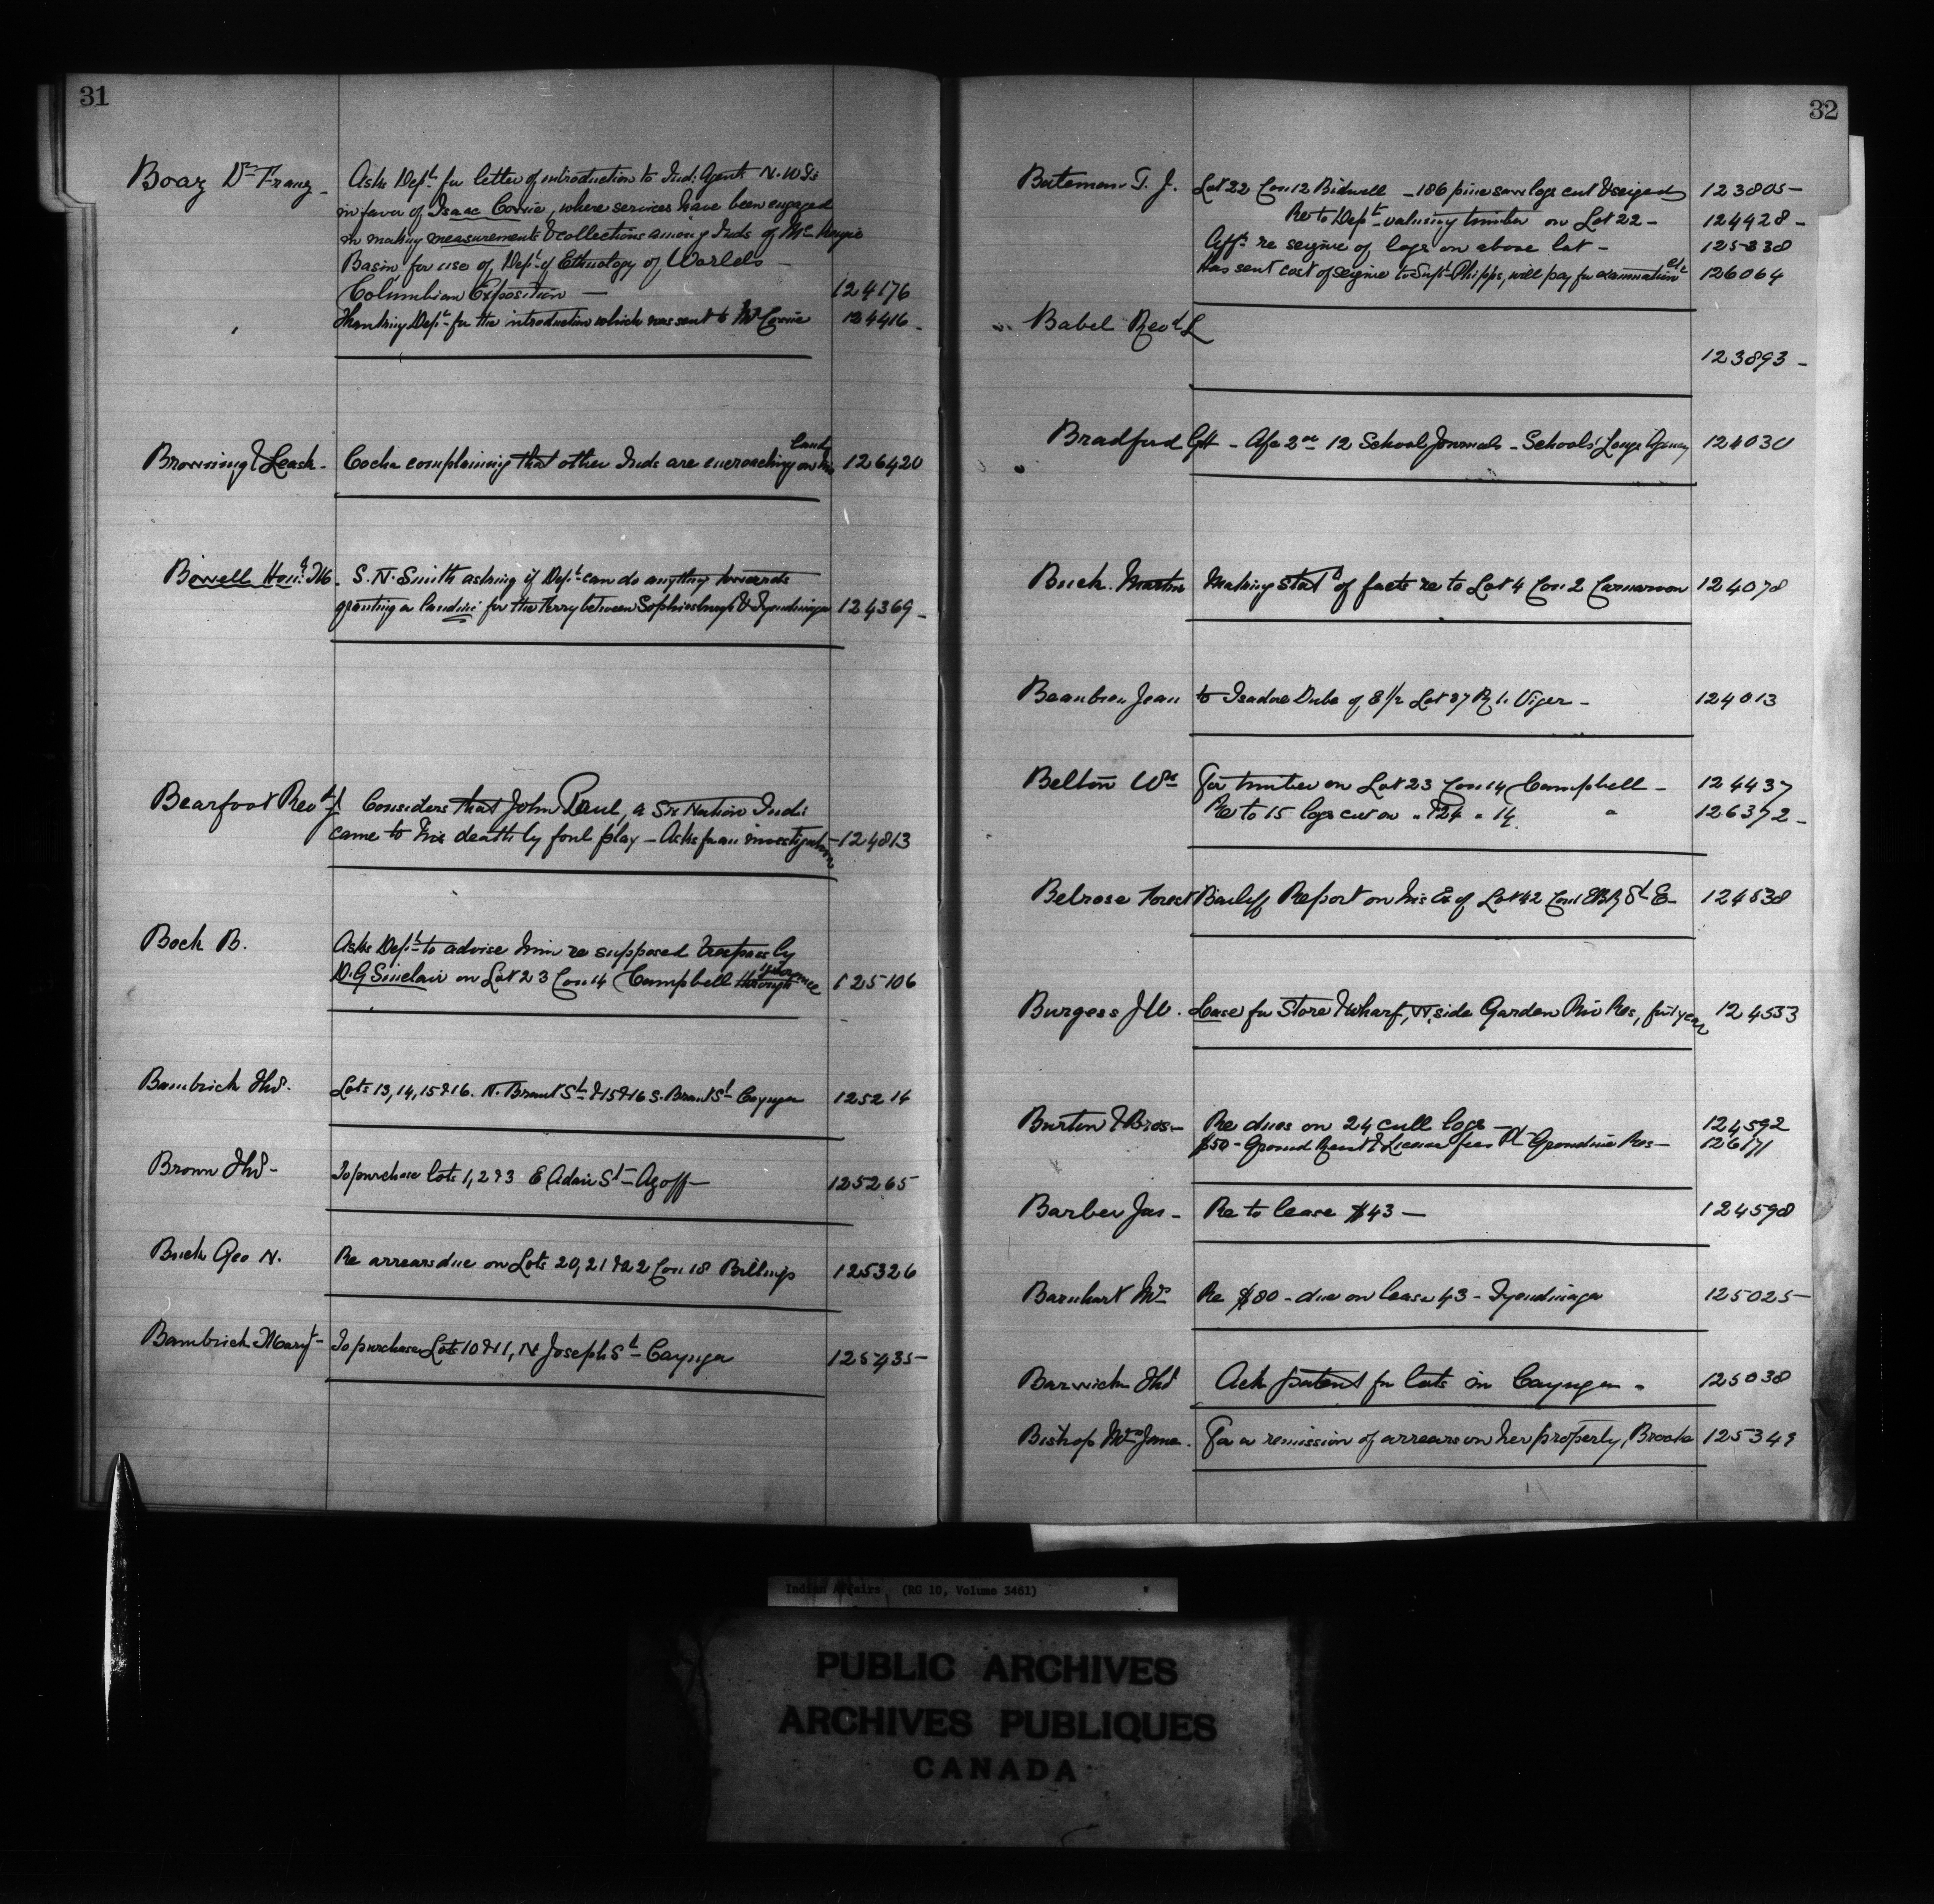 31
Boaz Dr Franz - Asks Dept for letter of introduction to Ind: Agents N.W.Ts
in favor of Isaac Cowie, where services have been engaged
in making measurements & collections among Inds of McKenzie
Basin, for use of, Dept of Ethnology of Worlds -
Columbian Exposition - 124176
Thanking Dept for the introduction which was sent to Mr Cowie 124416 -
Browning & Leask - Cocha complaining that other Inds are encroaching on his land 126420
Bowell Hon: M. S. N. Smith asking if Dept can do anything towards
granting a landing for the Ferry between Sophiasburgh & Tyendinaga 124369 -
Bearfoot Revd I Considers that John Paul, a Six Nation Indi:
came to his death by foul play - Asks for an investigation - 124813
Bock B. Asks Dept to advise him re supposed trespass by
D.G Sinclair on Lot 23 Con 14 Campbell through ignorance 125106
Bambrick Thos. Lots 13, 14, 15 & 16. N. Brant St & 15 & 16 S. Brant St Cayuga 125214
Brown Thos - To purchase lots 1, 2 & 3 E Adair St - Azoff - 125265
Buck Geo N. Re arrears due on Lots 20, 21 & 22 Con 18 Billings 125326
Bambrick Maryt - To purchase Lots 10 & 11, N Joseph St - Cayuga 125435 -
32
Bateman T. J. Lot 22 Con 12 Bidwell - 186 pine saw logs cut & seized 123805 -
Re to Dept valuing timber on Lot 22 - 124428 -
Afft re seizure of logs on above lot - 125830
Has sent cost of seizure to Supt Phipps, will pay for examination etc 126064
Babel Revd L
123893 -
Bradford GH - A/c 2nd 12 School Journals - Schools' Agency 124030
Buck. Martin Making Statt of facts re to Lot 4 Con 2 Carnarvon 124078
Beaubien Jean to Isadore Dube of E 1/2 Lot 27 R 1. Viger - 124013
Belton Wm For timber on Lot 23 Con 14 Campbell - 124437
Re to 15 logs cut on " 24 " 14 " 126372 -
Belrose Forest Bailiff Report on his Ex of Lot 42 St E - 124538
Burgess J W. Lease for Store & Wharf, W, side Garden Riv Res, for 1 year 124533
Burton & Bros - Re dues on 24 cull logs - 124592
$50 - Ground Rent & License fees Pt Grondine Res - 126171
Barber Jas - Re to lease #43 - 124598
Barnhart Mrs Re $80 - due on lease 43 - Tyendinaga 125025 -
Barwick Thos Ack patent for lots in Cayuga - 125038
Bishop Mrs Jane. For a remission of arrears on her property, Brooke 125349
Indian Affairs (RG 10, Volume 3461)
PUBLIC ARCHIVES
ARCHIVES PUBLIQUES
CANADA